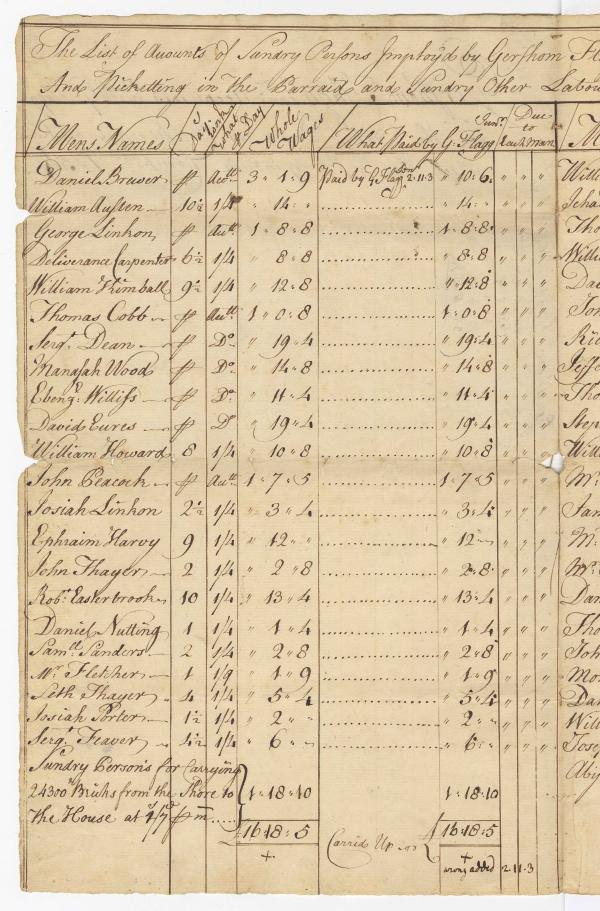 The List of Acounts of Sundry Persons Imploy'd by Gershom Fl
And Picketting in the Parraid and Sundry Other Labou
Mens Names Days Work What pr Day Whole Wages What Paid by G: Flagg Junr. Due to Each Man M
Daniel Brewer pr Acctt 3 " 1 " 9 Paid by G Flagg Son 2-11-3 " 10 " 6 " " " Will
William Austen 10½ 1/4 " 14 " " " 14 " " " " " Jeha
George Linkon pr Acctt 1 " 8 " 8 1 " 8 " 8 " " " Tho
Deliverance Carpenter 6½ 1/4 " 8 " 8 " 8 " 8 " " " Will
William Kimball 9½ 1/4 " 12 " 8 " 12 " 8 " " " Da
Thomas Cobb pr Acctt 1 " 0 " 8 1 " 0 " 8 " " " Jon
Sergt. Dean pr Do. " 19 " 4 " 19 " 4 " " " Ric
Manasah Wood pr Do. " 14 " 8 " 14 " 8 " " " Jeff
Ebenzr. Williss pr Do. " 11 " 4 " 11 " 4 " " " Tho
David Eures pr Do " 19 " 4 " 19 " 4 " " " Step
William Howard 8 1/4 " 10 " 8 " 10 " 8 " " " Will
John Peacock pr Acctt 1 " 7 " 5 1 " 7 " 5 " " " Mr.
Josiah Linkon 2½ 1/4 " 3 " 4 " 3 " 4 " " " Jam
Ephraim Harvy 9 1/4 " 12 " " " 12 " " " " " Mr.
John Thayer 2 1/4 " 2 " 8 " 2 " 8 " " " Mr.
Robt. Easterbrook 10 1/4 " 13 " 4 " 13 " 4 " " " Dan
Daniel Nutting 1 1/4 " 1 " 4 " 1 " 4 " " " Tho
Samll Sanders 2 1/4 " 2 " 8 " 2 " 8 " " " John
Mr. Fletcher 1 1/9 " 1 " 9 " 1 " 9 " " " Mo
Seth Thayer 4 1/4 " 5 " 4 " 5 " 4 " " " Dan
Josiah Porter 1½ 1/4 " 2 " " " 2 " " " " " Will
Sergt Feaver 4½ 1/4 " 6 " " " 6 " " " " " Josep
Sundry Person's for Carrying Abij
24300 Bricks from the Shore to 1 " 18 " 10 1 " 18 " 10
the House at 1/7 pr m
16 " 18 " 5 Carrid Up 16 " 18 " 5
+ +
wrong added 2-11-3